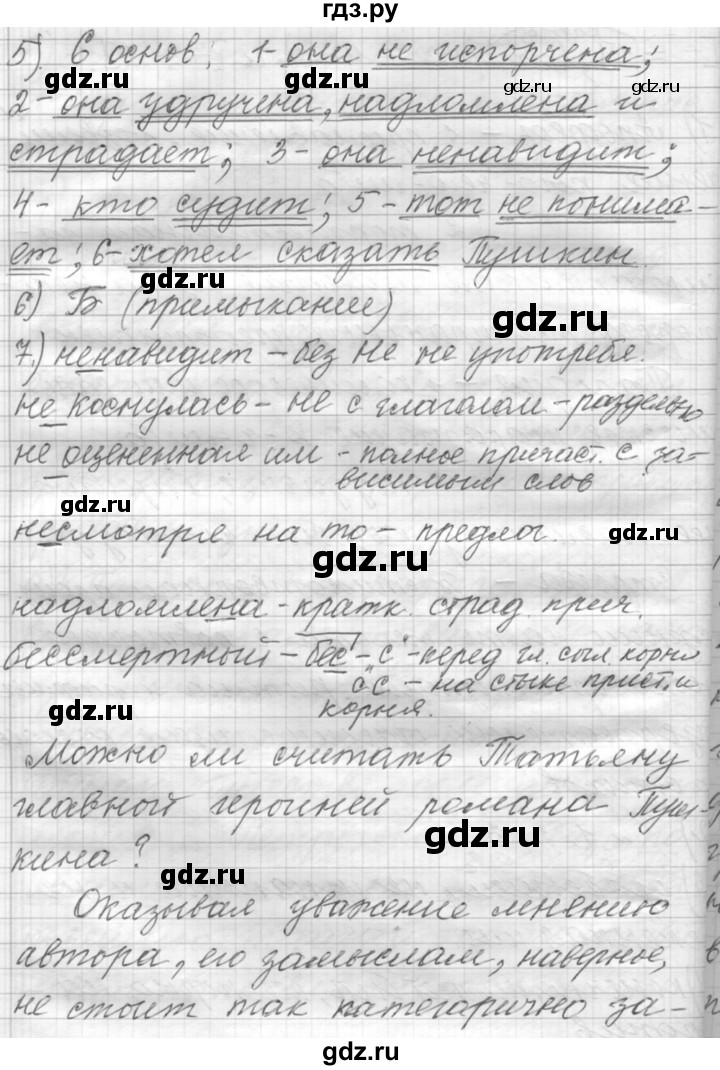 гдз.ру
5) 6 основ: 1- она не испорчена;
gdz.ru gdz.ru gdz.ru
2- она удручена, надломлена и
страдает; 3- она ненавидит;
gdz.ru gdz.ru
4- кто судит; 5- тот не понима-
ет; 6- хотел сказать Пушкин.
gdz.ru
6) Б (примыкание)
gdz.ru
7.) ненавидит - без Не не употребл.
не коснулась - не с глаголом - раздельно
gdz.ru
не оцененная им - полное причаст. с за-
висимым слов
gdz.ru
несмотря на то - предлог.
gdz.ru
gdz.ru
надломлена - кратк. страд. прич.
бессмертный - бес - "с" - перед гл. согл. корня
сс - на стыке прист. и
корня.
gdz.ru gdz.ru
Можно ли считать Татьяну
главной героиней романа Пуш-
кина?
gdz.ru
gdz.ru
Оказывая уважение мнению
автора, его замыслам, наверное,
gdz.ru gdz.ru
не стоит так категорично за-
gdz.ru